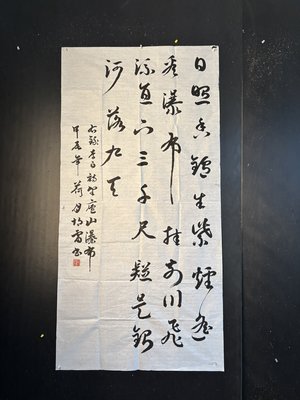 日照香鑪生紫煙遙
看瀑布挂前川飛
流直下三千尺疑是銀
河落九天
右錄李白詩望廬山瀑布
甲辰年荷月書